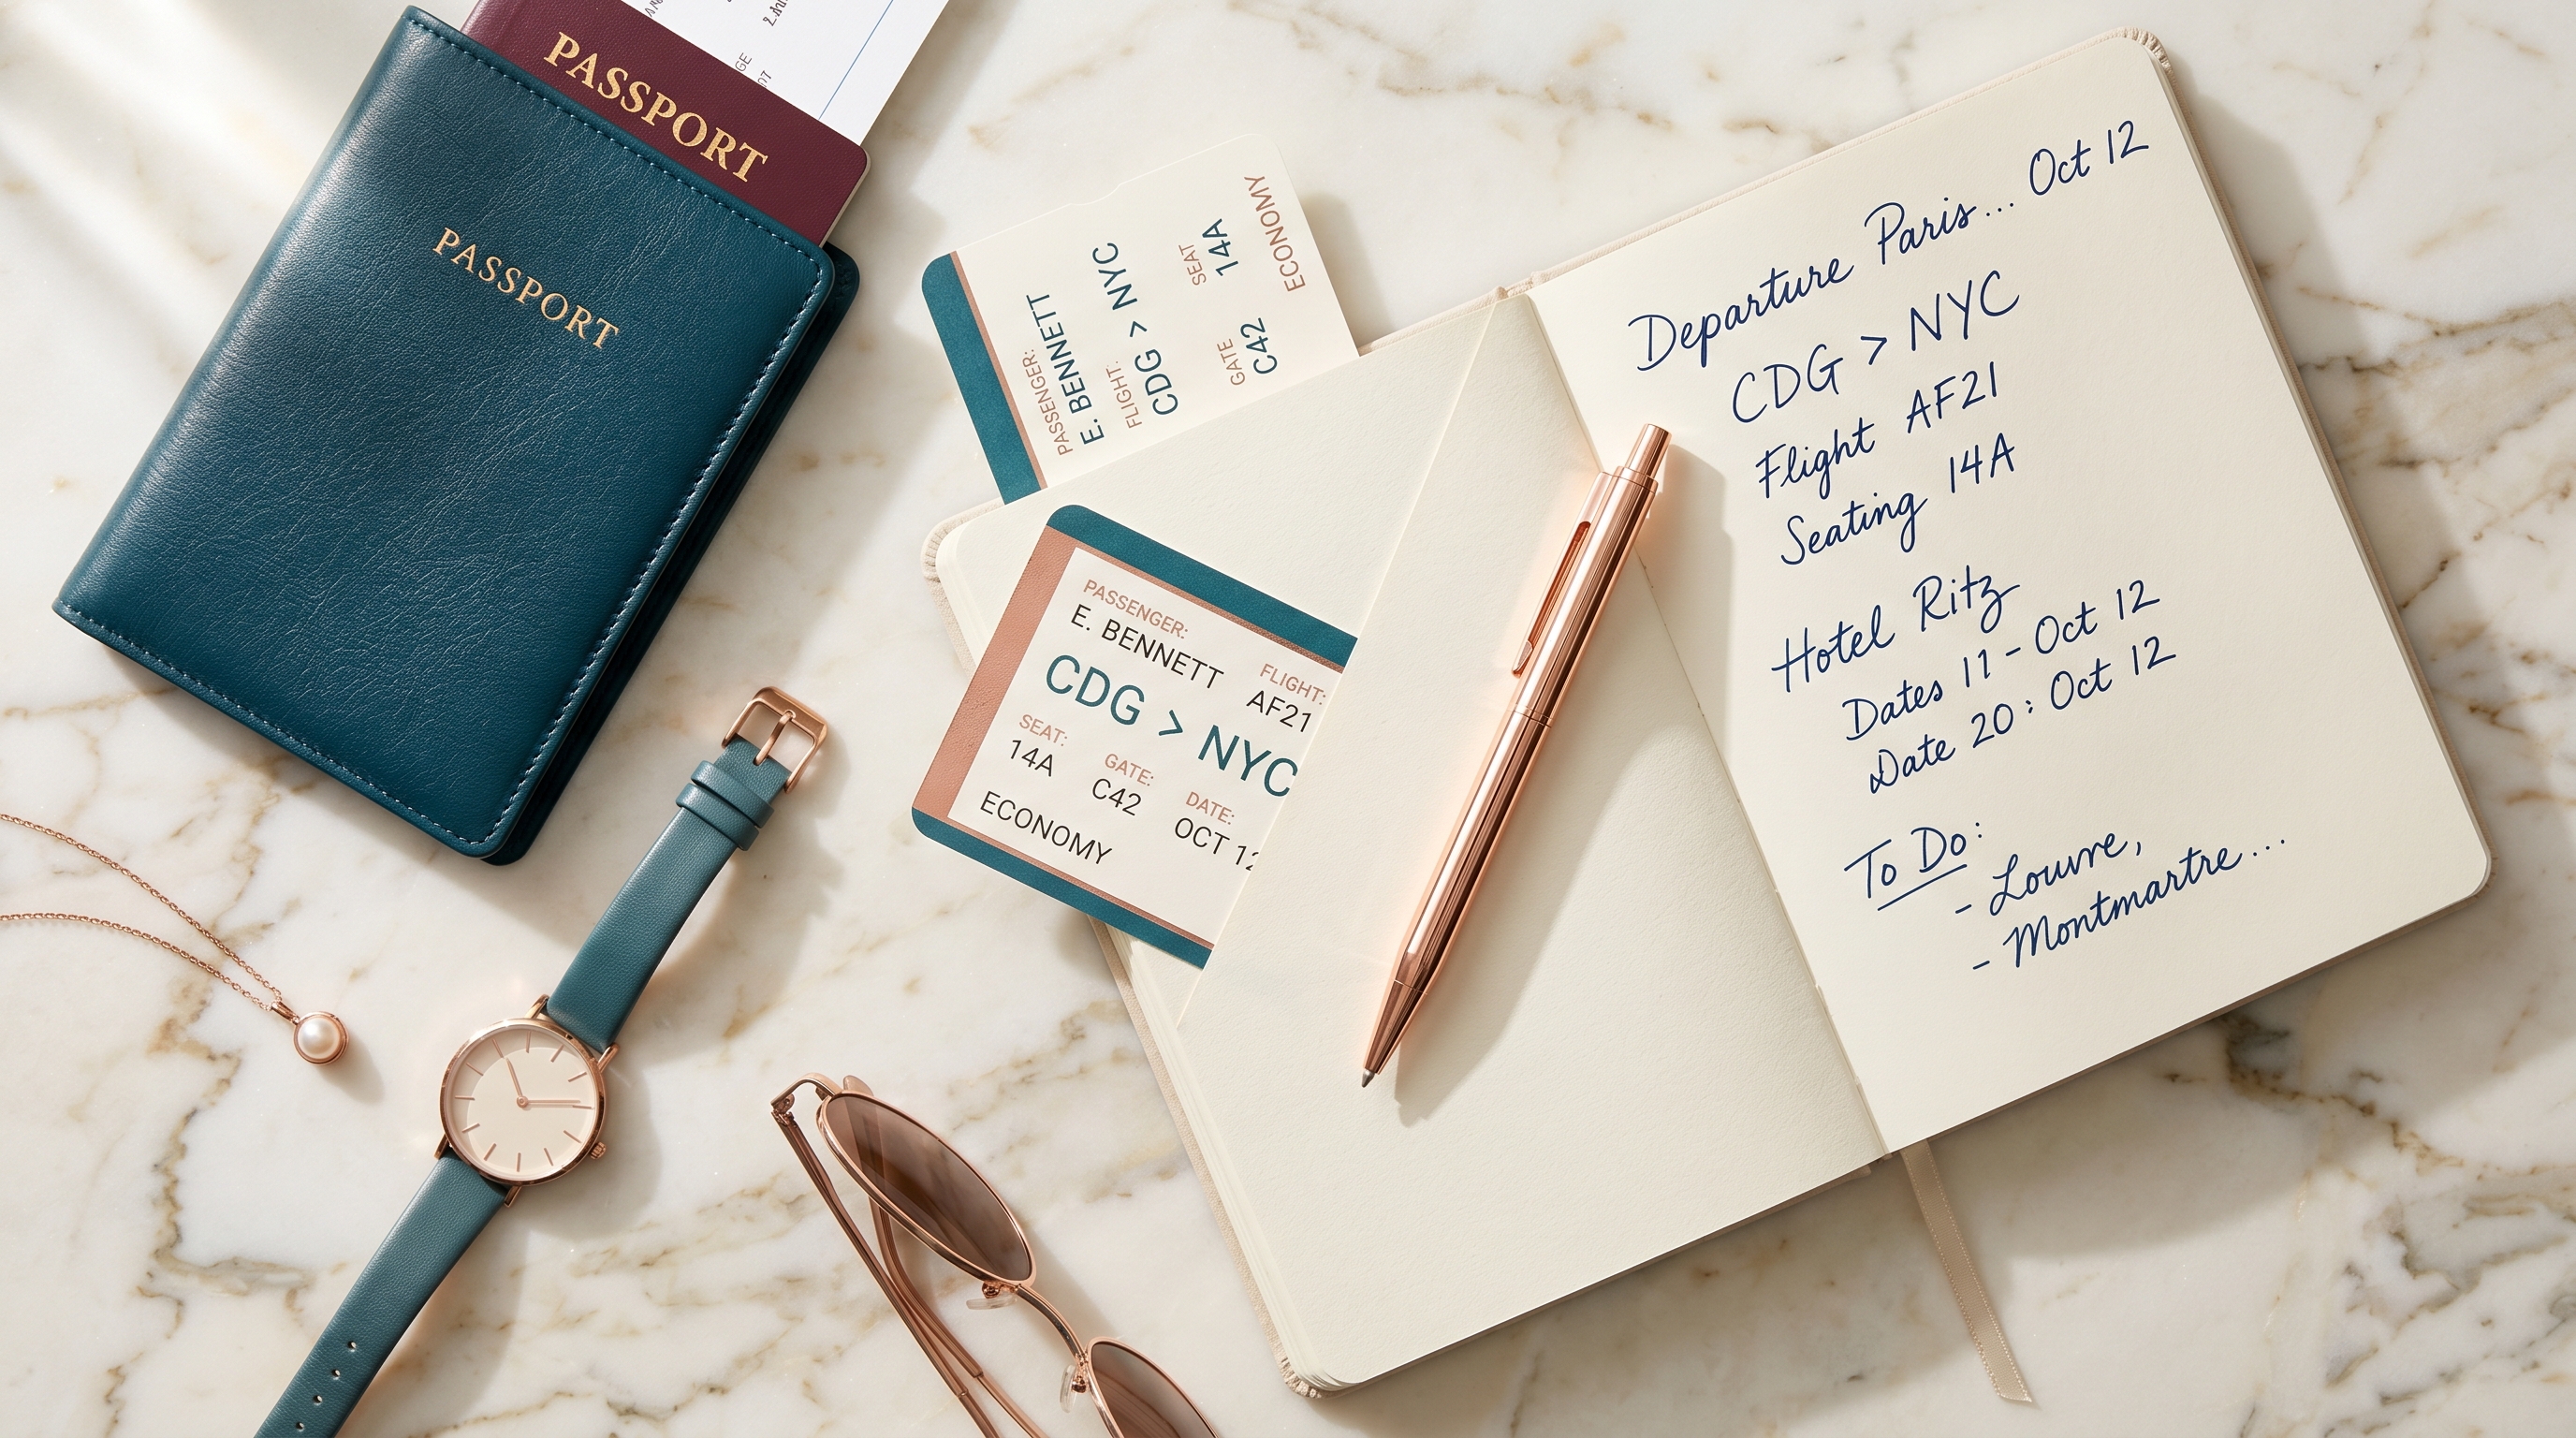 PASSPORT
PASSPORT
PASSENGER:
E. BENNETT
FLIGHT:
CDG > NYC
SEAT
14A
GATE
C42
ECONOMY
PASSENGER:
E. BENNETT
FLIGHT:
AF21
CDG > NYC
SEAT:
14A
GATE:
C42
DATE:
OCT 12
ECONOMY
Departure Paris... Oct 12
CDG > NYC
Flight AF21
Seating 14A
Hotel Ritz
Dates 11 - Oct 12
Date 20: Oct 12
To Do:
- Louvre,
- Montmartre...